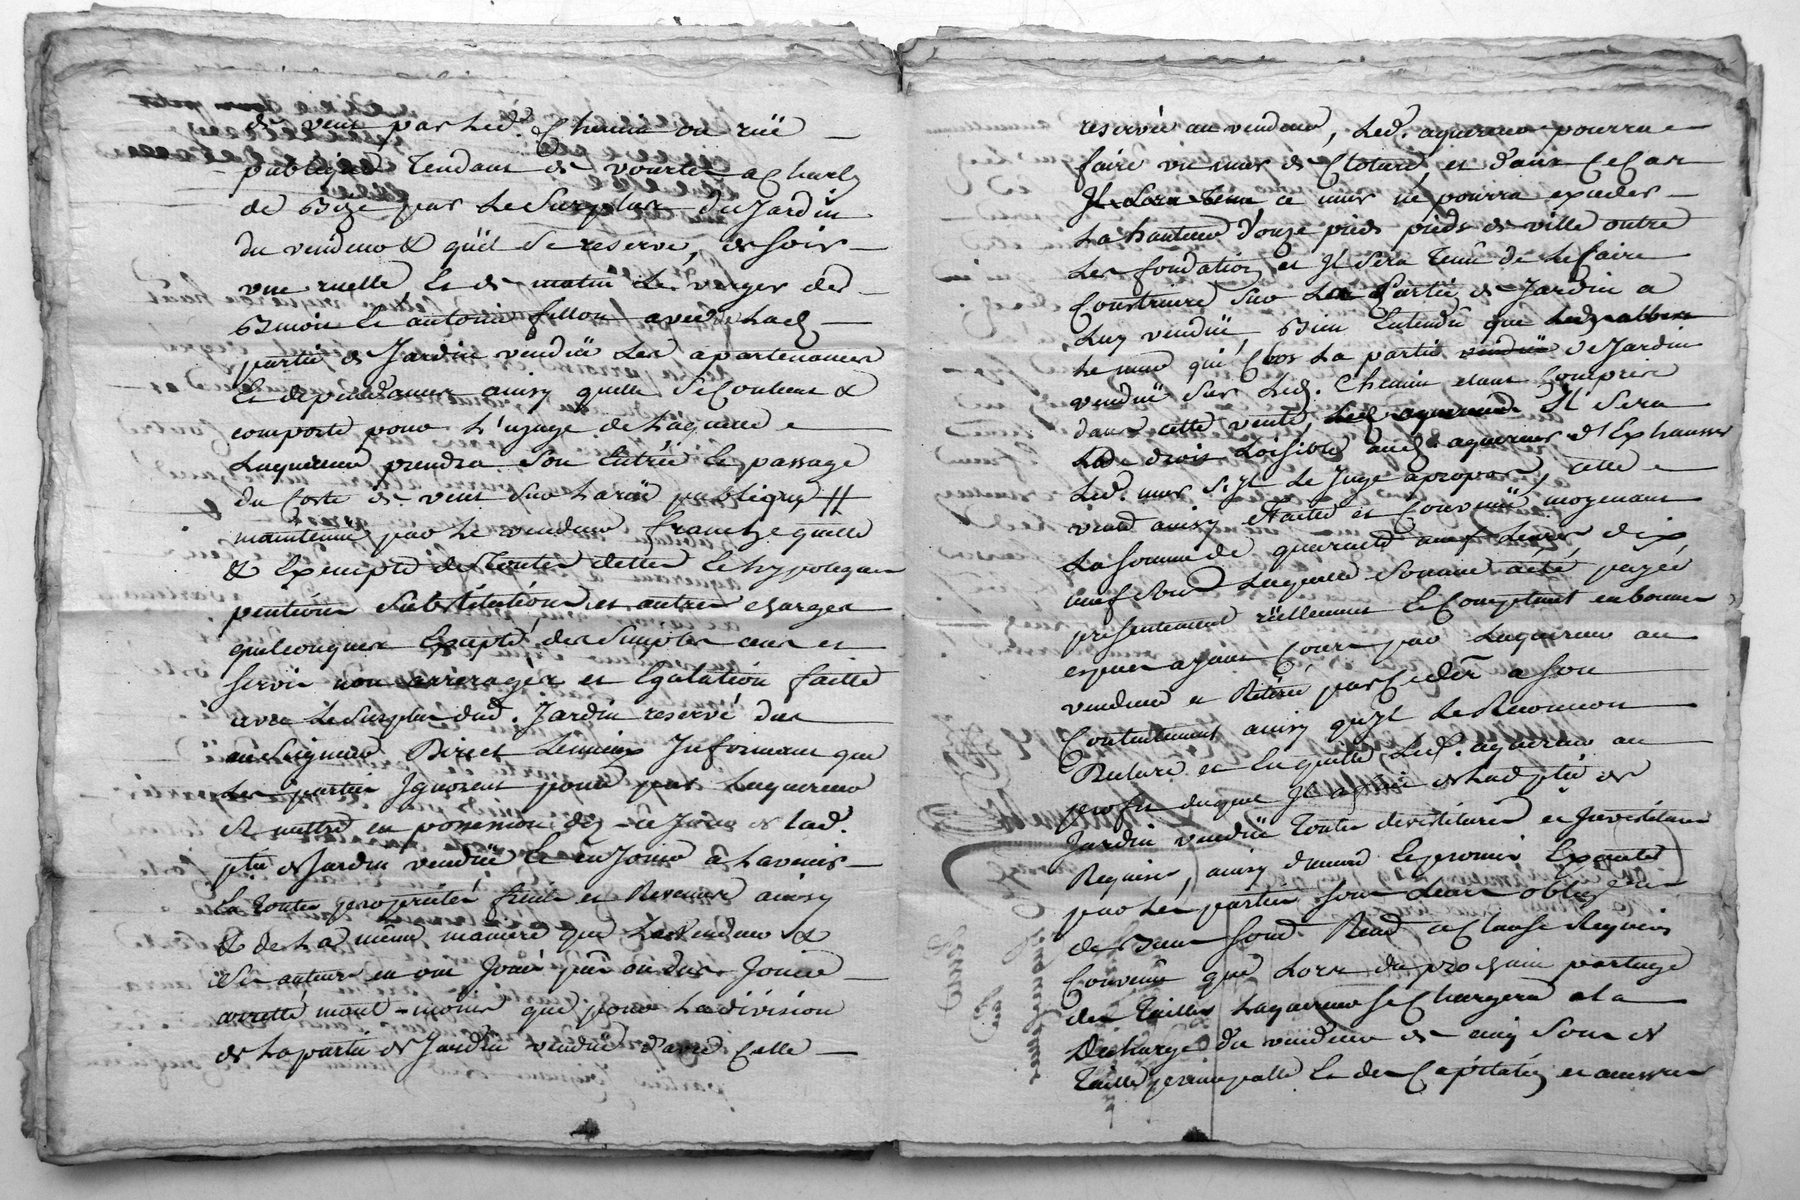 de vent par led. Chemin ou rüe
publique Tendant de vourles a Charly
de Bize par le Surplus du Jardin
du vendeur & quil Se reserve, de soir
une ruelle, Et de matin Les verger de
Benoit Et antoine fillon avec de lad.
partie de Jardin vendüe Les apartenances
Et dependances ainsy quelle Se Contient &
comporte pour L'usage de Laquelle
Laquereur prendra Son Entrée Et passage
du Coste de vent Sur La rüe publique #
maintenüe par Le vendeur franche quitte
& Exempte de Toutes dettes Et hypoteques
pentions Substitutions et autres charges
quelconques Excepté des Simples cens et
Servis non arreragés et Egalation faitte
avec Le Surplus dud. Jardin reservé dus
au Seigneur Direct Lequel Informant que
Les parties Ignorent pour par Laquereur
Se mettre en possession dez ce Jour de lad.
ptie de Jardin vendüe Et en Jouir a Lavenir
En Toutes proprietés fruits et Revenus ainsy
& de La même maniere que Le vendeur &
Ses auteurs en ont Joüi pû ou dus Joüir
arretté neant-moins que pour La division
de La partie de Jardin vendüe d'avec Celle
reservée au vendeur, Led. aquereur pourra
faire un mur de Cloture et dans Ce Cas
Il Sera Tenu ce mur ne pourra exceder
La hauteur d'onze pieds pieds de ville outre
Les fondations et Il Sera Tenu de Le faire
Construire Sur La Partie de Jardin a
Luy vendüe, Bien Entendu que
Le mur qui Clos La partie vendüe de Jardin
vendüe Sur Led. Chemin etant Compris
dans cette vente, Led. aquereur Il Sera
Loisible aud. aquereur d'Exhausser
Led. mur S'yl Le Juge apropos, cette
vente ainsy faitte et Convenüe moyenant
La Somme de quarante neuf Livres dix
neuf Sols Laquelle Somme a été payée
presentement réellement Et Comptant en bonnes
especes ayant Cours par Laquereur au
vendeur et Retirée par Celuy a Son
Contentement ainsy quyl Le Reconnoit
et En quitte Led. aquereur au
profit duquel Il a fait de Lad. ptie de
Jardin vendüe toutes devestitures et Investitures
Requises, ainsy Convenu Et promis Executer
par Les parties Sous Leurs oblig.on
de Biens Soud. Renon. Clause Requises
Convenu que Lors du prochain partage
des Tailles Laquereur Se Chargera a La
Decharge du vendeur de cinq Sols de
Taille principalle Et des Capitation et autres